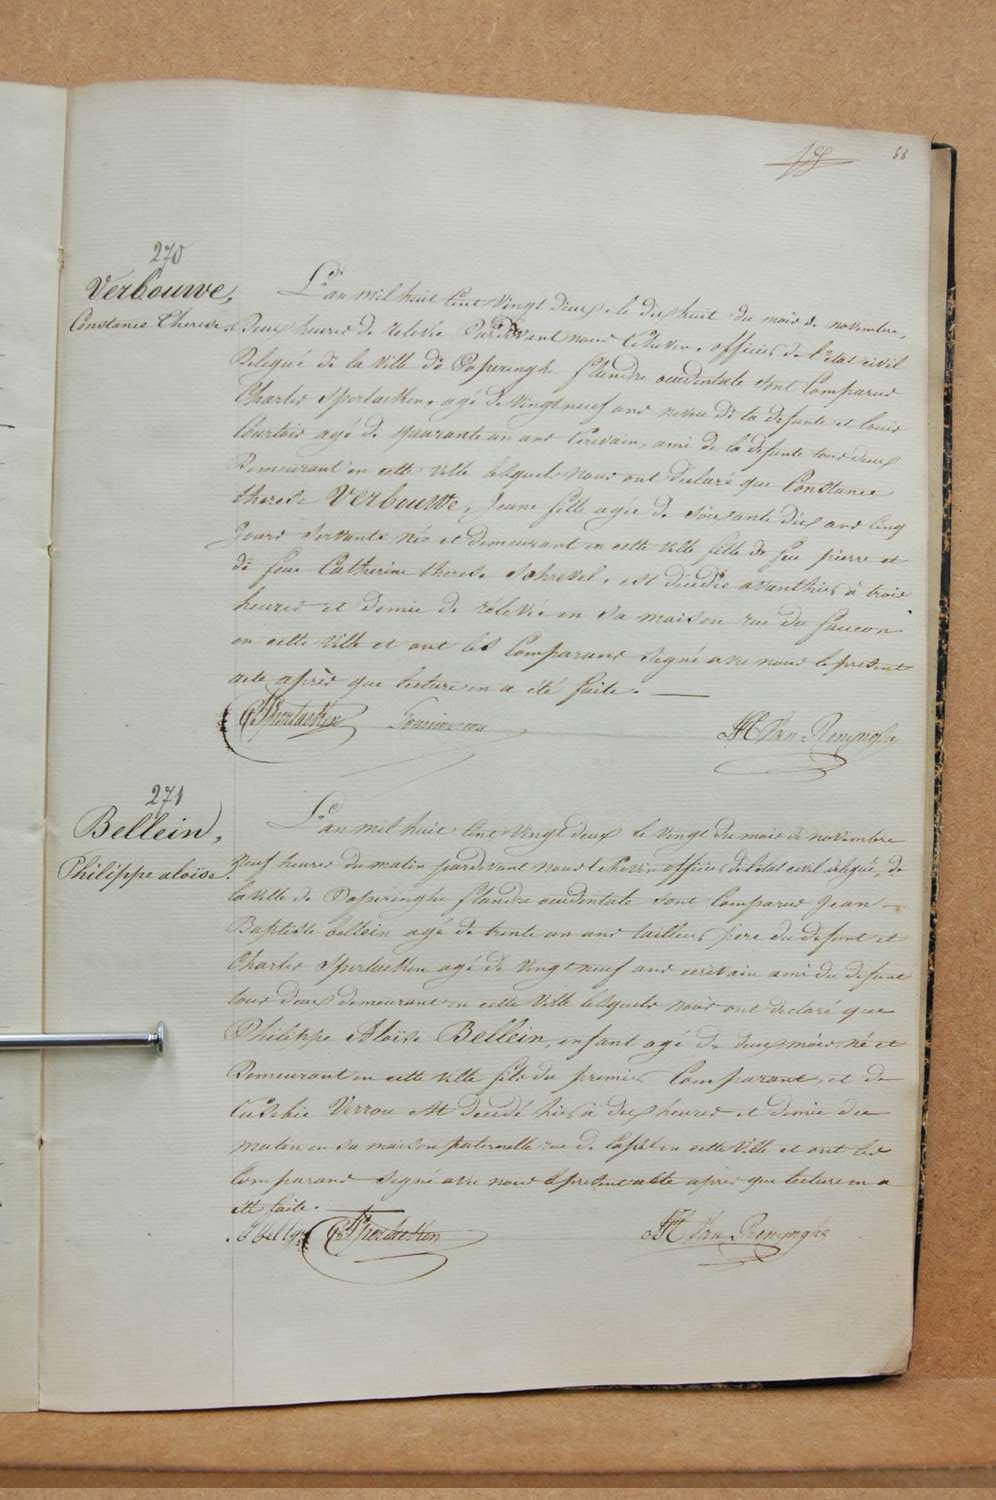 88
270
Verbouwe,
Constance Therese.
L'an mil huit Cent Vingt deux, le dix huit du mois de novembre,
Deux heures de relevée Pardevant nous Echevin, officier de l'état civil
Délégué de la Ville de Poperinghe flandre occidentale sont Comparus
Charles Sperlaeken, agé de vingt neuf ans neveu de la defunte et Louis
Courtois agé de quarante un ans Ecrivain, ami de la defunte tous deux
Demeurant en cette Ville lesquels nous ont Declaré que Constance
therese Verbouwe, Jeune fille agée de Soixante dix ans Cinq
jours Servante Née et demeurant en cette Ville fille de feu pierre et
de feue Catherine therese Schrevel, est décédée avanthier à trois
heures et demie de rélevée en sa maison rue du faucon
en cette Ville et ont les Comparans Signé avec nous le présent
acte après que lecture en a été faite.
Van Renynghe
271
Bellein,
Philippe aloïse.
L'an mil huit Cent Vingt deux le Vingt du mois de novembre
Neuf heures du matin pardevant nous Echevin officier de l'état civil délégué, de
la Ville de Poperinghe flandre occidentale sont Comparus Jean
Baptiste bellein agé de trente un ans tailleur père du defunt et
Charles Sperlaeken agé de Vingt neuf ans ecrivain ami du defunt
tous deux demeurant en cette Ville lesquels nous ont declaré que
Philippe Aloïse Bellein, enfant agé de deux mois né et
Demeurant en cette Ville fils du premier Comparant, et de
Eusebie Verrou est decedé hier à dix heures et demie du
matin en sa maison paternelle rue de en cette Ville et ont les
Comparans Signé avec nous le présent acte après que lecture en a
été faite.
Van Renynghe